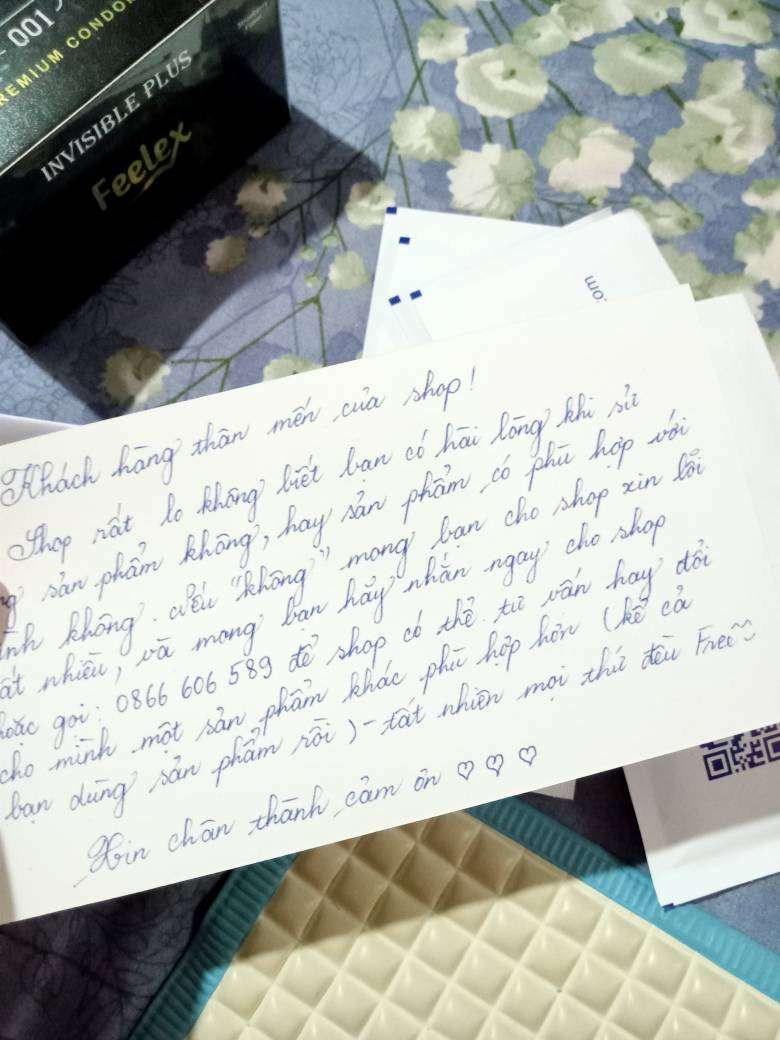 001
PREMIUM CONDOM
INVISIBLE PLUS
Feelex
om
Khách hàng thân mến của shop!
Shop rất lo không biết bạn có hài lòng khi sử
ng sản phẩm không, hay sản phẩm có phù hợp với
ình không. Nếu "không" mong bạn cho shop xin lỗi
ất nhiều, và mong bạn hãy nhắn ngay cho shop
hoặc gọi: 0866 606 589 để shop có thể tư vấn hay đổi
cho mình một sản phẩm khác phù hợp hơn (kể cả
bạn dùng sản phẩm rồi) - tất nhiên mọi thứ đều Free~~
Xin chân thành cảm ơn ♡ ♡ ♡